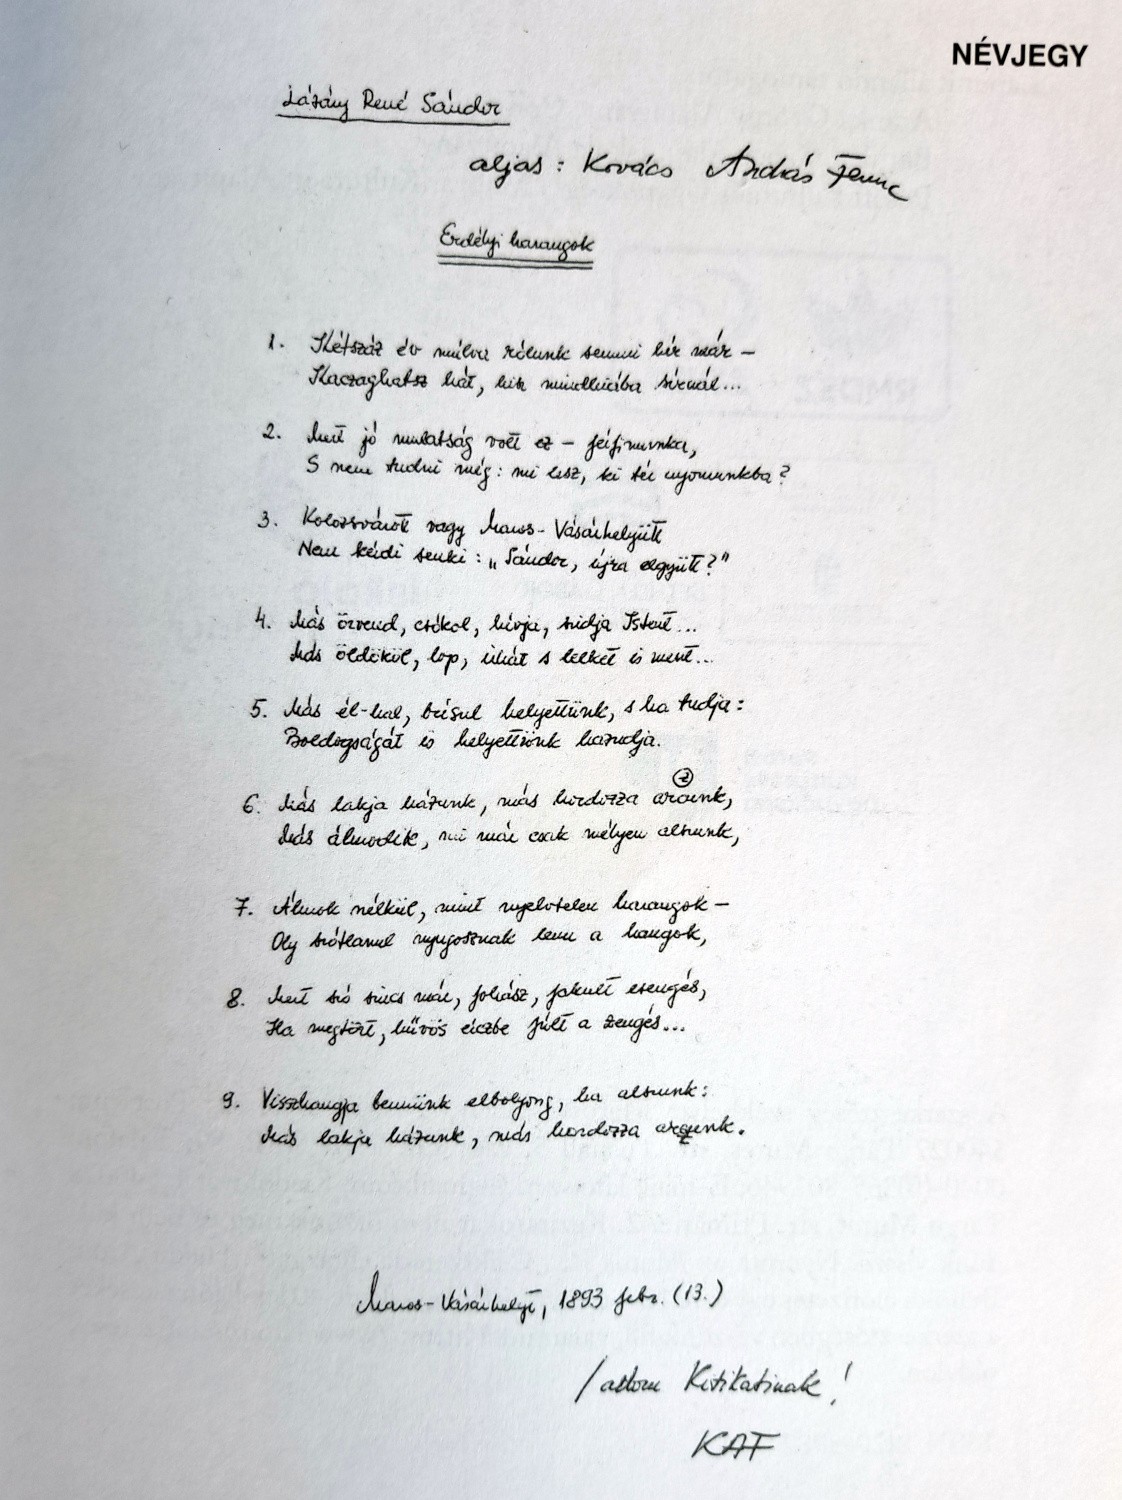 NÉVJEGY
Lázáry René Sándor
aljas: Kovács András Ferenc
Erdélyi harangok
1. Kétszáz év múlva rólunk semmi hír már –
Kaczaghatsz hát, hisz mindhiába sírnál...
2. Mert jó mulatság volt ez – férfimunka,
S nem tudni még: mi lesz, ki tér nyomunkba?
3. Kolozsvárott vagy Maros-Vásárhelyütt
Nem kérdi senki: „Sándor, újra együtt?"
4. Más örvend, csókol, hívja, szidja Istent...
Más öldököl, lop, ürhát s lelket is ment...
5. Más él-hal, búsul helyettünk, s ha tudja:
Boldogságát is helyettünk hazudja.
6. Más lakja házunk, más hordozza arcunk,
z
Más álmodik, mi már csak mélyen alszunk,
7. Álmok nélkül, mint nyelvtelen harangok –
Oly szótlanul nyugosznak lenn a hangok,
8. Mert szó sincs már, fohász, fakult esengés,
Ha megtört, hűvös érczbe fúlt a zengés...
9. Visszhangja bennünk elbolyong, ha alszunk:
Más lakja házunk, más hordozza arczunk.
Maros-Vásárhelyt, 1893 febr. (13.)
/ adtam Kitikatinak!
KAF